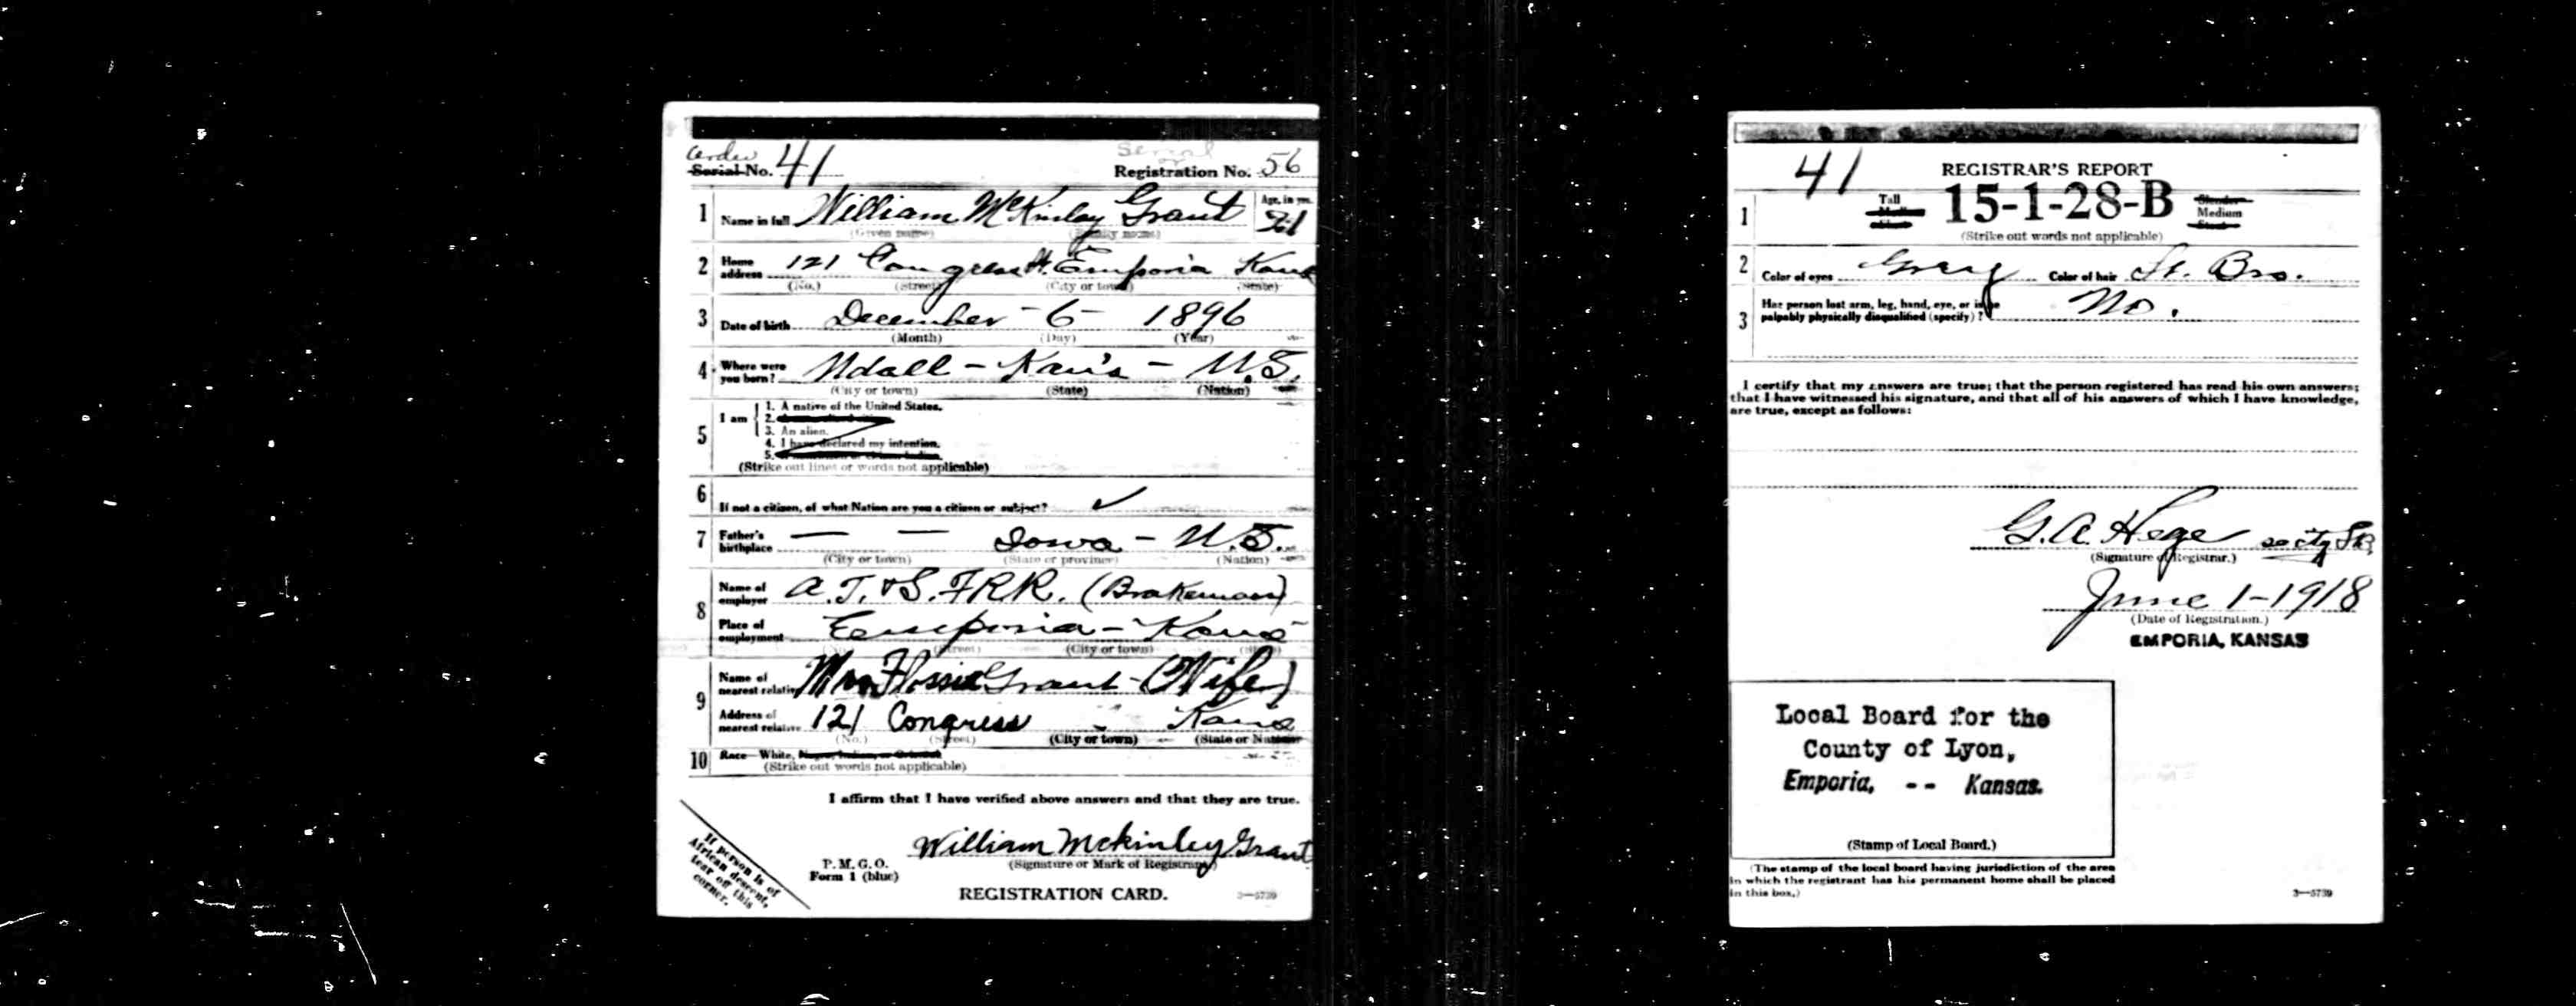 Order
Serial No. 41
Serial
or
Registration No. 56
1 Name in full William McKinley Grant Age, in yrs. 21
(Given name) (Family name)
2 Home address 121 Congress St. Emporia Kans
(No.) (Street) (City or town) (State)
3 Date of birth December - 6 - 1896
(Month) (Day) (Year)
4 Where were you born? Udall - Kan's - U.S.
(City or town) (State) (Nation)
5 I am 1. A native of the United States.
2.
3. An alien.
4. I have declared my intention.
5.
(Strike out lines or words not applicable)
6 If not a citizen, of what Nation are you a citizen or subject? ✓
7 Father's birthplace — — Iowa - U.S.
(City or town) (State or province) (Nation)
8 Name of employer A.T. & S.F.RR. (Brakeman)
Place of employment Emporia - Kans
(No.) (Street) (City or town) (State)
9 Name of nearest relative Mrs Flossie Grant - (Wife)
Address of nearest relative 121 Congress Kans
(No.) (Street) (City or town) (State or Nation)
10 Race—White, Negro, Indian, or Oriental
(Strike out words not applicable)
I affirm that I have verified above answers and that they are true.
William Mckinley Grant
(Signature or Mark of Registrant)
P. M. G. O.
Form 1 (blue)
REGISTRATION CARD.
3—5739
If person is of
African descent,
tear off this
corner.
41
REGISTRAR'S REPORT
15-1-28-B
1 Tall Slender
Medium
(Strike out words not applicable)
2 Color of eyes Grey Color of hair Lt. Bro.
3 Has person lost arm, leg, hand, eye, or is he palpably physically disqualified (specify)? No.
I certify that my answers are true; that the person registered has read his own answers;
that I have witnessed his signature, and that all of his answers of which I have knowledge,
are true, except as follows:
G.A. Hege
(Signature of Registrar.)
June 1-1918
(Date of Registration.)
EMPORIA, KANSAS
Local Board for the
County of Lyon,
Emporia, -- Kansas.
(Stamp of Local Board.)
(The stamp of the local board having jurisdiction of the area
in which the registrant has his permanent home shall be placed
in this box.)
3—5739